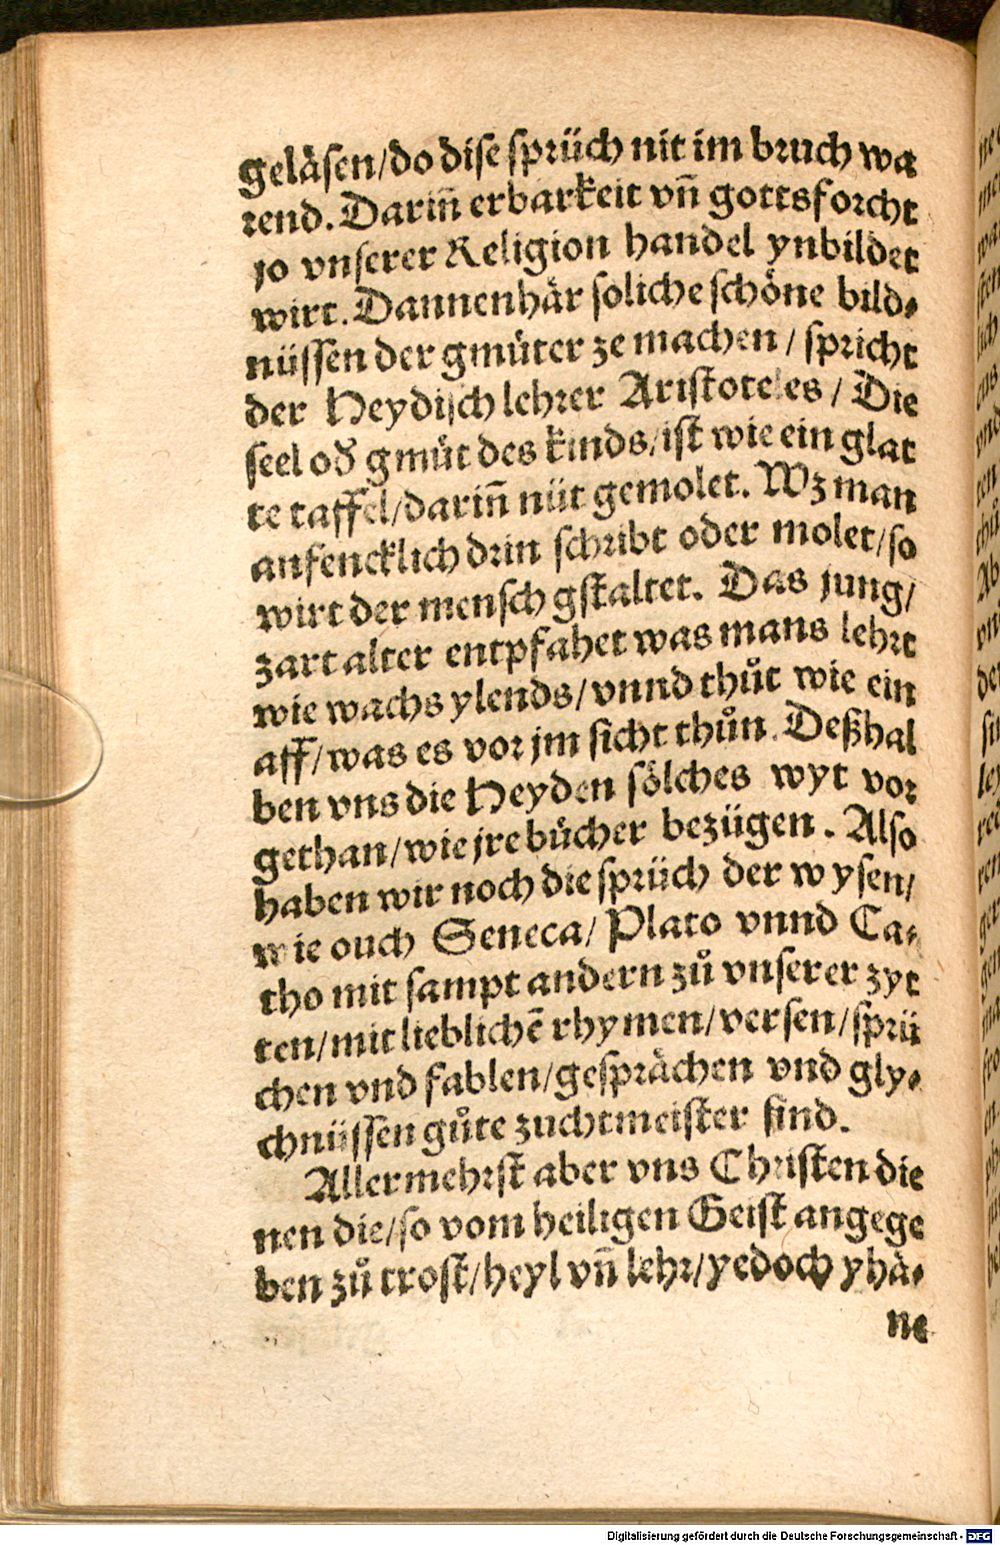 geläsen/do dise sprüch nit im bruch wa
rend. Dariñ erbarkeit vñ gottsforcht
jo vnserer Religion handel ynbildet
wirt. Dannenhär soliche schöne bild⸗
nüssen der gmüter ze machen / spricht
der Heydisch lehrer Aristoteles / Die
seel oď gmüt des kinds/ist wie ein glat
te taffel/dariñ nüt gemolet. Wz man
anfencklich drin schribt oder molet/so
wirt der mensch gstaltet. Das jung/
zart alter entpfahet was mans lehrt
wie wachs ylends/vnnd thůt wie ein
aff/was es vor jm sicht thůn. Deßhal
ben vns die Heyden sölches wyt vor
gethan/wie jre bücher bezügen. Also
haben wir noch die sprüch der wysen/
wie ouch Seneca/ Plato vnnd Ca⸗
tho mit sampt andern zů vnserer zyt
ten/mit lieblichē rhymen/versen/sprü
chen vnd fablen/gesprächen vnd gly⸗
chnüssen gůte zuchtmeister sind.
Allermehrst aber vns Christen die
nen die/so vom heiligen Geist angege
ben zů trost/heyl vñ lehr/yedoch yhä⸗
ne
Digitalisierung gefördert durch die Deutsche Forschungsgemeinschaft - DFG